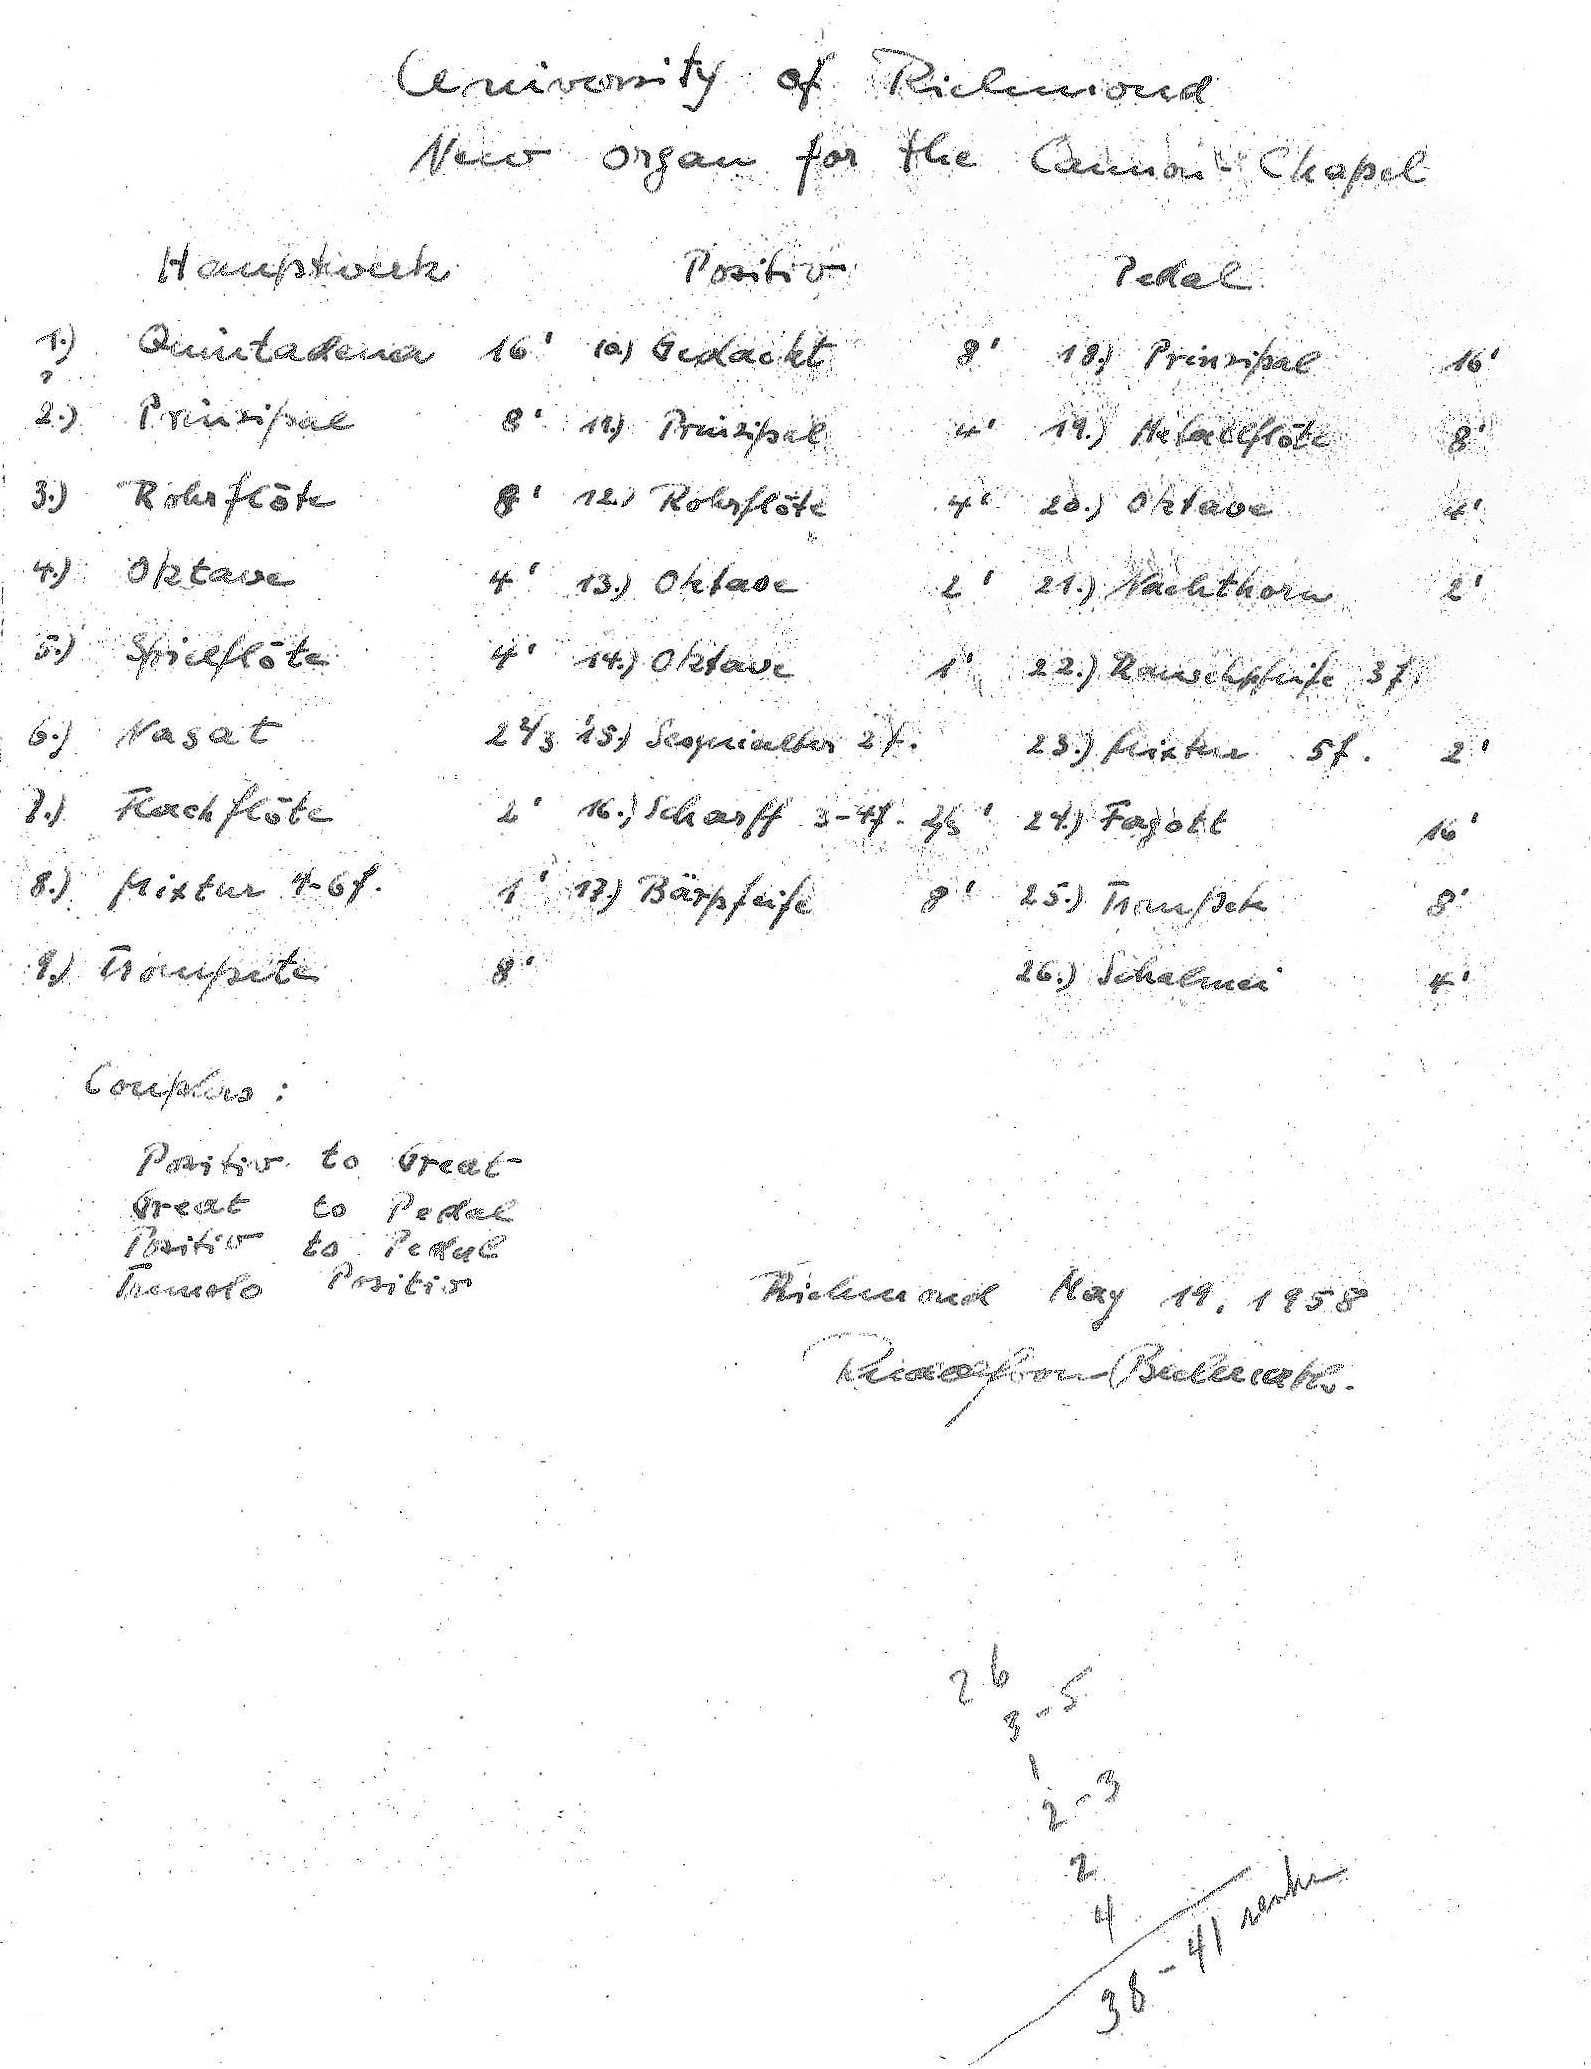 University of Richmond
New organ for the Cannon-Chapel
Hauptwerk Positiv Pedal
1.) Quintadena 16' 10.) Gedackt 8' 18.) Prinzipal 16'
?
2.) Prinzipal 8' 11.) Prinzipal 4' 19.) Metallflöte 8'
3.) Rohrflöte 8' 12.) Rohrflöte 4' 20.) Oktave 4'
4.) Oktave 4' 13.) Oktave 2' 21.) Nachthorn 2'
5.) Spielflöte 4' 14.) Oktave 1' 22.) Rauschpfeife 3f.
6.) Nasat 2 2/3' 15.) Sesquialter 2f. 23.) Mixtur 5f. 2'
7.) Flachflöte 2' 16.) Scharff 3-4f. 2/3' 24.) Fagott 16'
8.) Mixtur 4-6f. 1' 17.) Bärpfeife 8' 25.) Trompete 8'
9.) Trompete 8' 26.) Schalmei 4'
Couplers:
Positiv to Great
Great to Pedal
Positiv to Pedal
Tremolo Positiv
Richmond May 19, 1958
Rudolf von Beckerath.
26
3-5
1
2-3
2
4
38-41 ranks